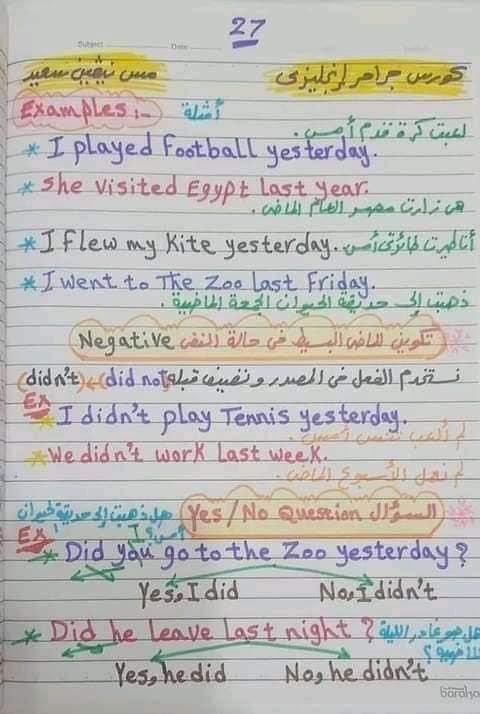 27
Subject Date
كورس جرامر إنجليزى مس نيفين سعيد
Examples:- أمثلة
لعبت كرة قدم أمس.
* I played football yesterday.
* She visited Egypt last year.
هى زارت مصر العام الماضى.
* I flew my kite yesterday. أنا طيرت طائرتى أمس
* I went to The Zoo last Friday.
ذهبت إلى حديقة الحيوان الجمعة الماضية.
تكوين الماضى البسيط فى حالة النفى Negative
نستخدم الفعل فى المصدر ونضيف قبله (did not) ← (didn't)
Ex
* I didn't play Tennis yesterday.
لم ألعب تنس أمس.
* We didn't work last week.
لم نعمل الأسبوع الماضى.
السؤال Yes/No Question هل ذهبت إلى حديقة الحيوان أمس؟
Ex I
* Did you go to the Zoo yesterday?
Yes, I did No, I didn't
* Did he leave last night? هل هو غادر الليلة الماضية؟
Yes, he did No, he didn't